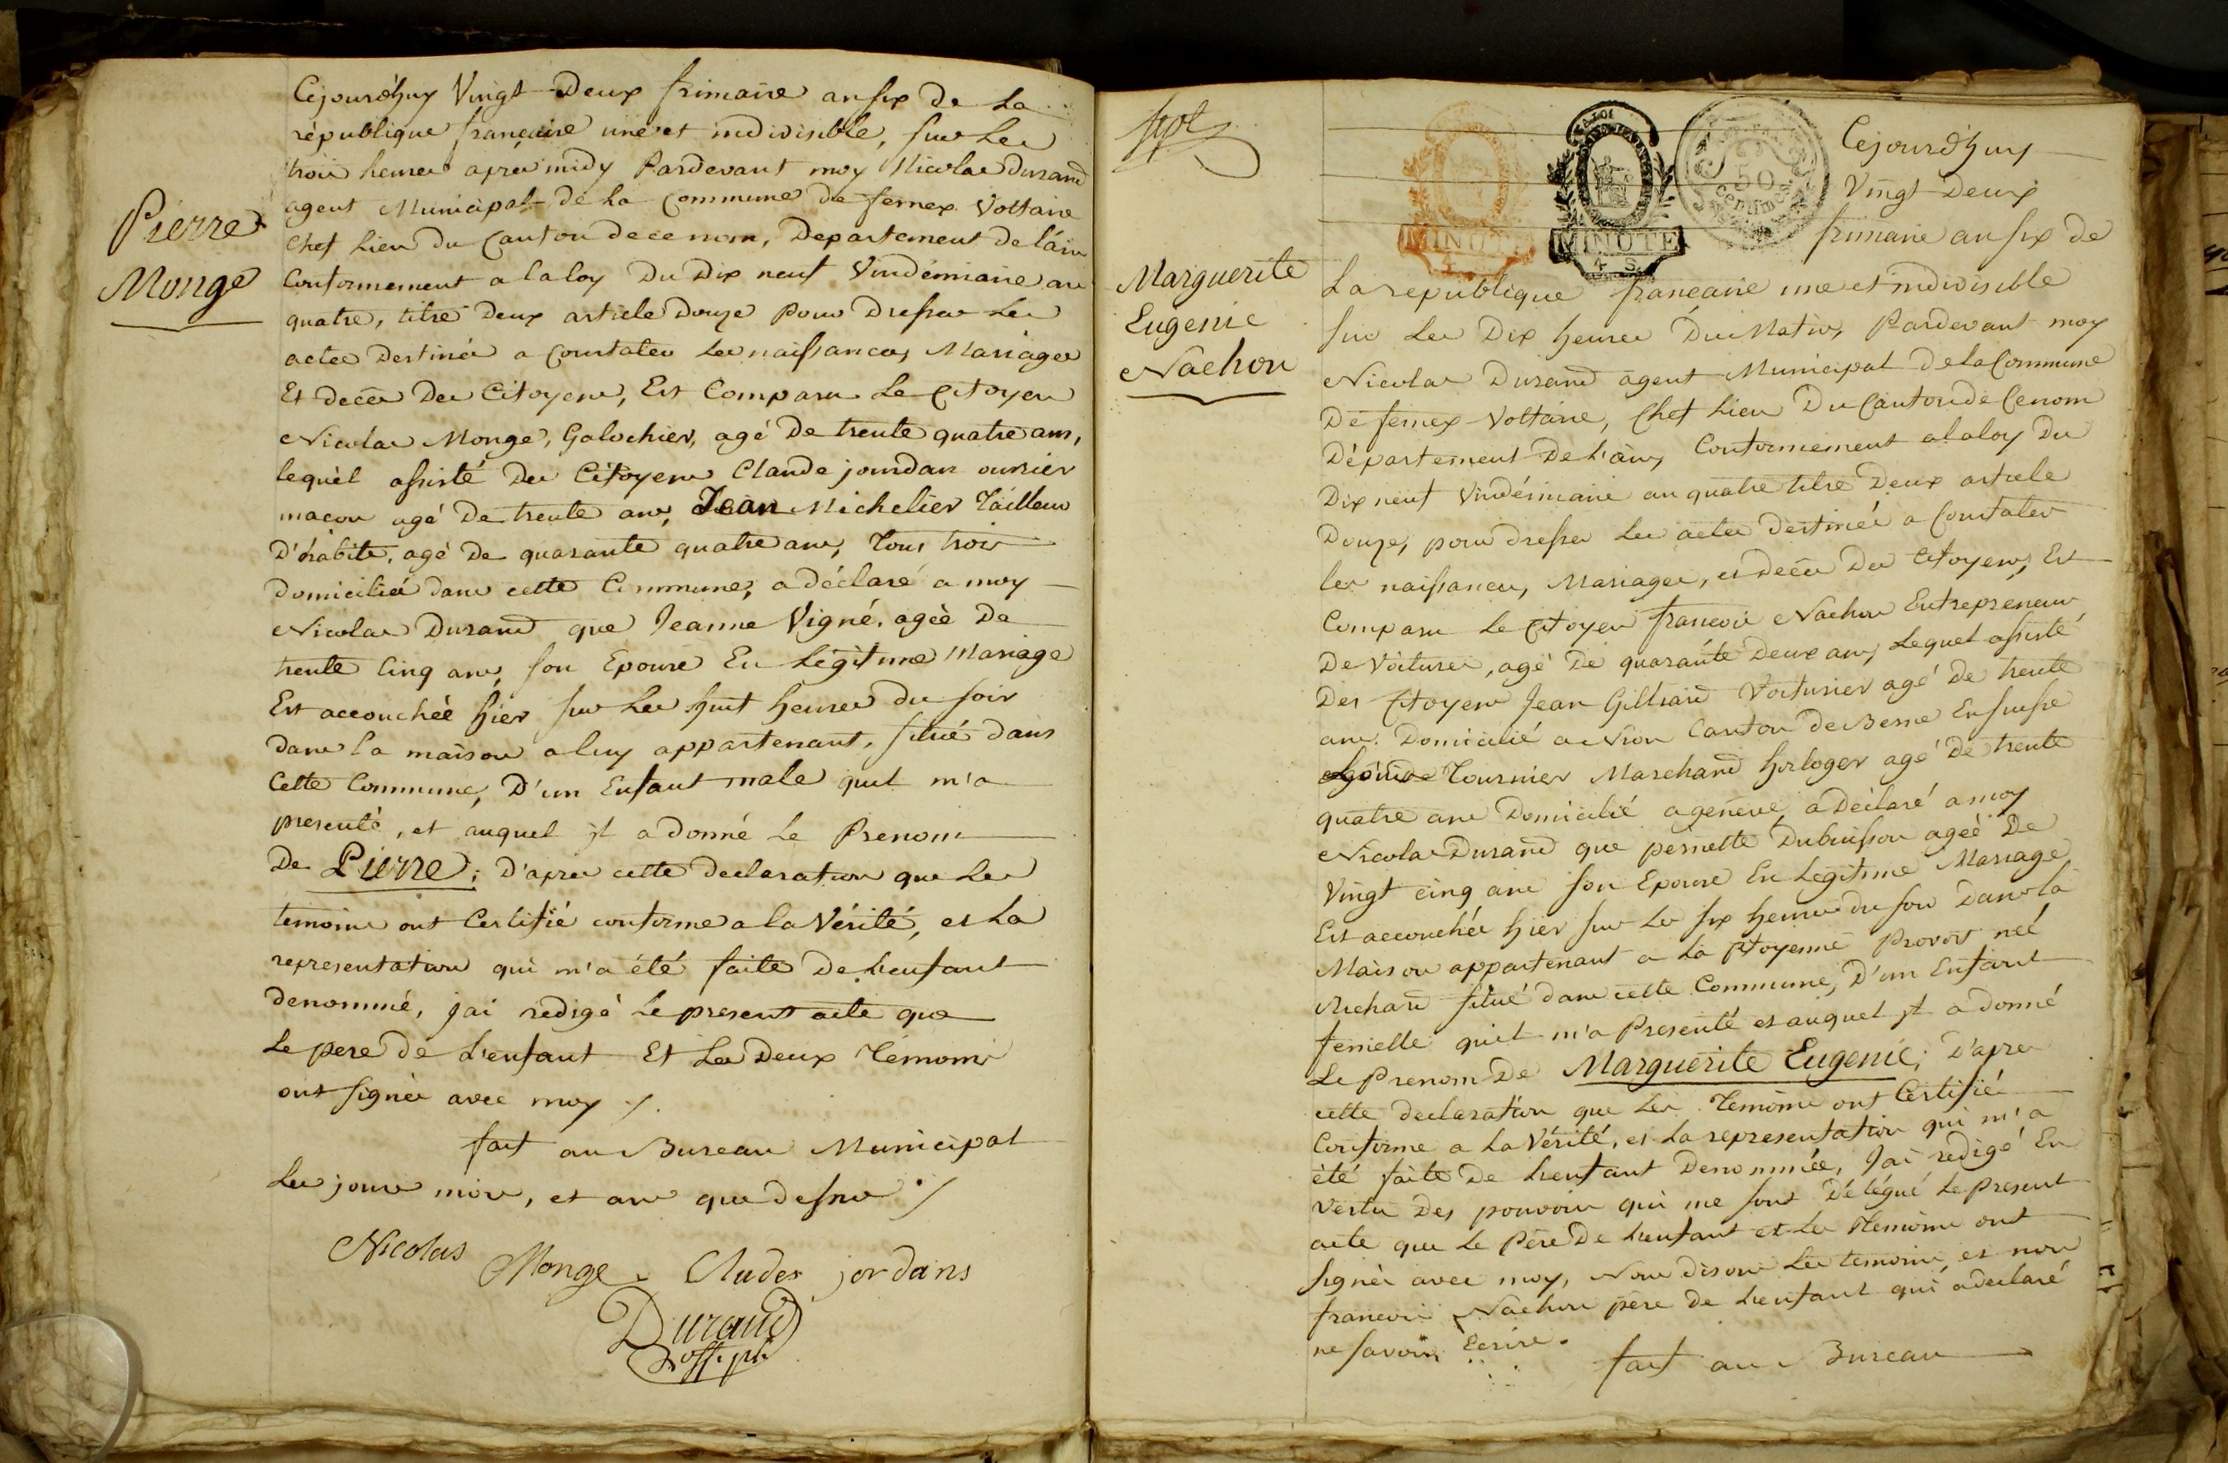 Pierre
Monge
Cejourd'huy Vingt Deux frimaire an six De La
république française une et indivisible, sur Les
trois heures apres midy Pardevant moy Nicolas Durand
agent Municipal de La Commune de fernex Voltaire
Chef Lieu Du Canton de ce nom, Departement De l'ain
Conformement a la loy Du Dix neuf Vindémiaire an
quatre, titre Deux article Douze Pour Dresser Les
actes Destinés a Constater Les naissances, Mariages
Et décès Des Citoyens, Est Comparu Le Citoyen
Nicolas Monge, Galochier, agé De trente quatre ans,
lequèl assisté Des Citoyens Claude jourdan ouvrier
maçon agé De trente ans, Jean Michelier Tailleur
D'habits, agé De quarante quatre ans, Tous trois
Domiciliés dans cette Commune, a déclaré a moy
Nicolas Durand que Jeanne Vigné, agèè De
trente Cinq ans, son Epouse En Légitime Mariage
Est accouchèè hier sur Les huit heures du soir
dans la maison a luy appartenant, situé dans
Cette Commune, D'un Enfant male quil m'a
presenté, et auquel il a donné Le Prenom
De Pierre; D'après cette declaration que Les
temoins ont Certifié conforme a la Vérité, et La
representation qui m'a été faite De L'enfant
denommé, jai redigé Le present acte que
Le pere de L'enfant Et Les Deux Témoins
ont signés avec moy /.
fait au Bureau Municipal
Les jours mois, et an que dessus ./
Nicolas Monge Cludes jordans
Durand
Marguerite
Eugenie
Nachon
MINUTE
MINUTE
4 S.
50
Centimes
Cejourd'huy
Vingt Deux
frimaire an six de
La republique française une et indivisible
sur Les Dix heures Du Matin, Pardevant moy
Nicolas Durand agent Municipal De la Commune
De fernex Voltaire, Chef Lieu Du Canton de Ce nom
Département De L'ain, Conformement a la loy Du
Dix neuf Vindémiaire an quatre titre Deux article
Douze, pour dresser Les actes destinés a Constater
les naissances, Mariages, et decès Des Citoyens, Est
Comparu Le Citoyen francois Nachon Entrepreneur
De Voitures, agé De quarante Deux ans, Lequel assisté
Des Citoyens Jean Gilliard Voiturier agé de trente
ans. Domicilié a Nion Canton de Berne En suisse
Tournier Marchand horloger agé De trente
quatre ans Domicilié a geneve, a Dèclaré a moy
Nicolas Durand que pernette Dubuisson ageè De
Vingt cinq ans son Epouse En Legitime Mariage
Est accouchéé hier sur Les six heures du soir Dans la
Maison appartenant a La Citoyenne Provost neé
Richard situé dans cette Commune, D'un Enfant
femelle quil m'a Presenté et auquel il a donné
Le Prenom De Marguerite Eugenie; D'apres
cette declaration que Les Temoins ont Certifié
Conforme a La Vérité, et La representation qui m'a
été faite De L'enfant Denommée, Jai redigé En
Vertu Des pouvoirs qui me sont Délégué Le Present
acte que Le Père De L'enfant et Les Temoins ont
signés avec moy, Nous disons Les temoins, et non
francois Nachon père De L'enfant qui a declaré
ne savoir Ecrire.
fait au Bureau